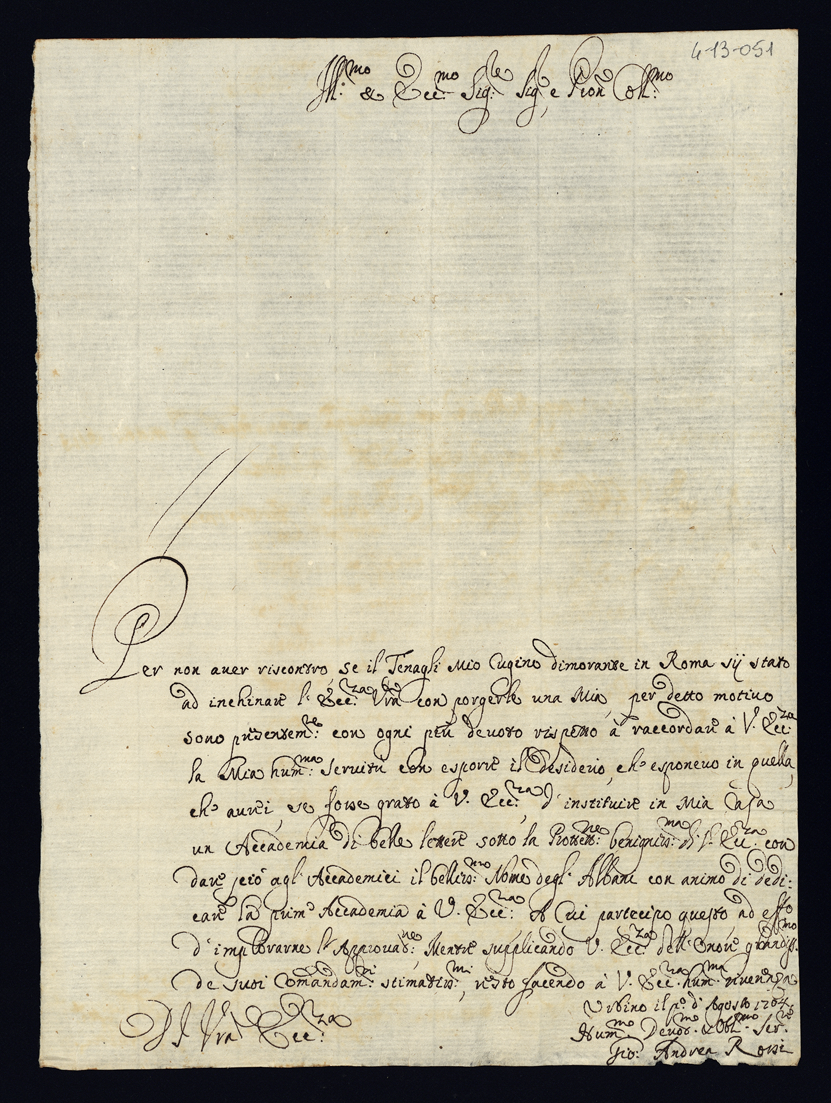 4-13-051
Ill.mo & Ecc.mo Sig.re Sig.r e Pron Col.mo
Per non auer riscontro, se il Tenagli Mio Cugino dimorante in Roma sij stato
ad inchinare l'Ecc.za Vra con porgerle una Mia, per detto motivo
sono presentem.te con ogni più devoto rispetto à raccordare à V. Ecc.za
la Mia hum.ma servitù con esporre il desiderio, che esponevo in quella,
che aurei, se fosse grato à V. Ecc.za d'instituire in Mia Casa
un Accademia di belle lettere sotto la Protett.ne benigniss.ma di V. Ecc.za con
dare però agl'Accademici il belliss.mo Nome degl'Albani con animo di dedi:
care la prim.a Accademia à V. Ecc.za A Cui partecipo questo ad effo
d'implorarne l'Approvat.ne, Mentre supplicando V. Ecc.za dell'onore grandiss.mo
de suoi Comandam.ti stimatiss.mi, resto facendo à V. Ecc.za hum.ma riverenza
Urbino il p.o d'Agosto 1704.
Di Vra Ecc.za
Hum.mo Devot.mo & Obl.mo Ser.re
Gio: Andrea Rossi